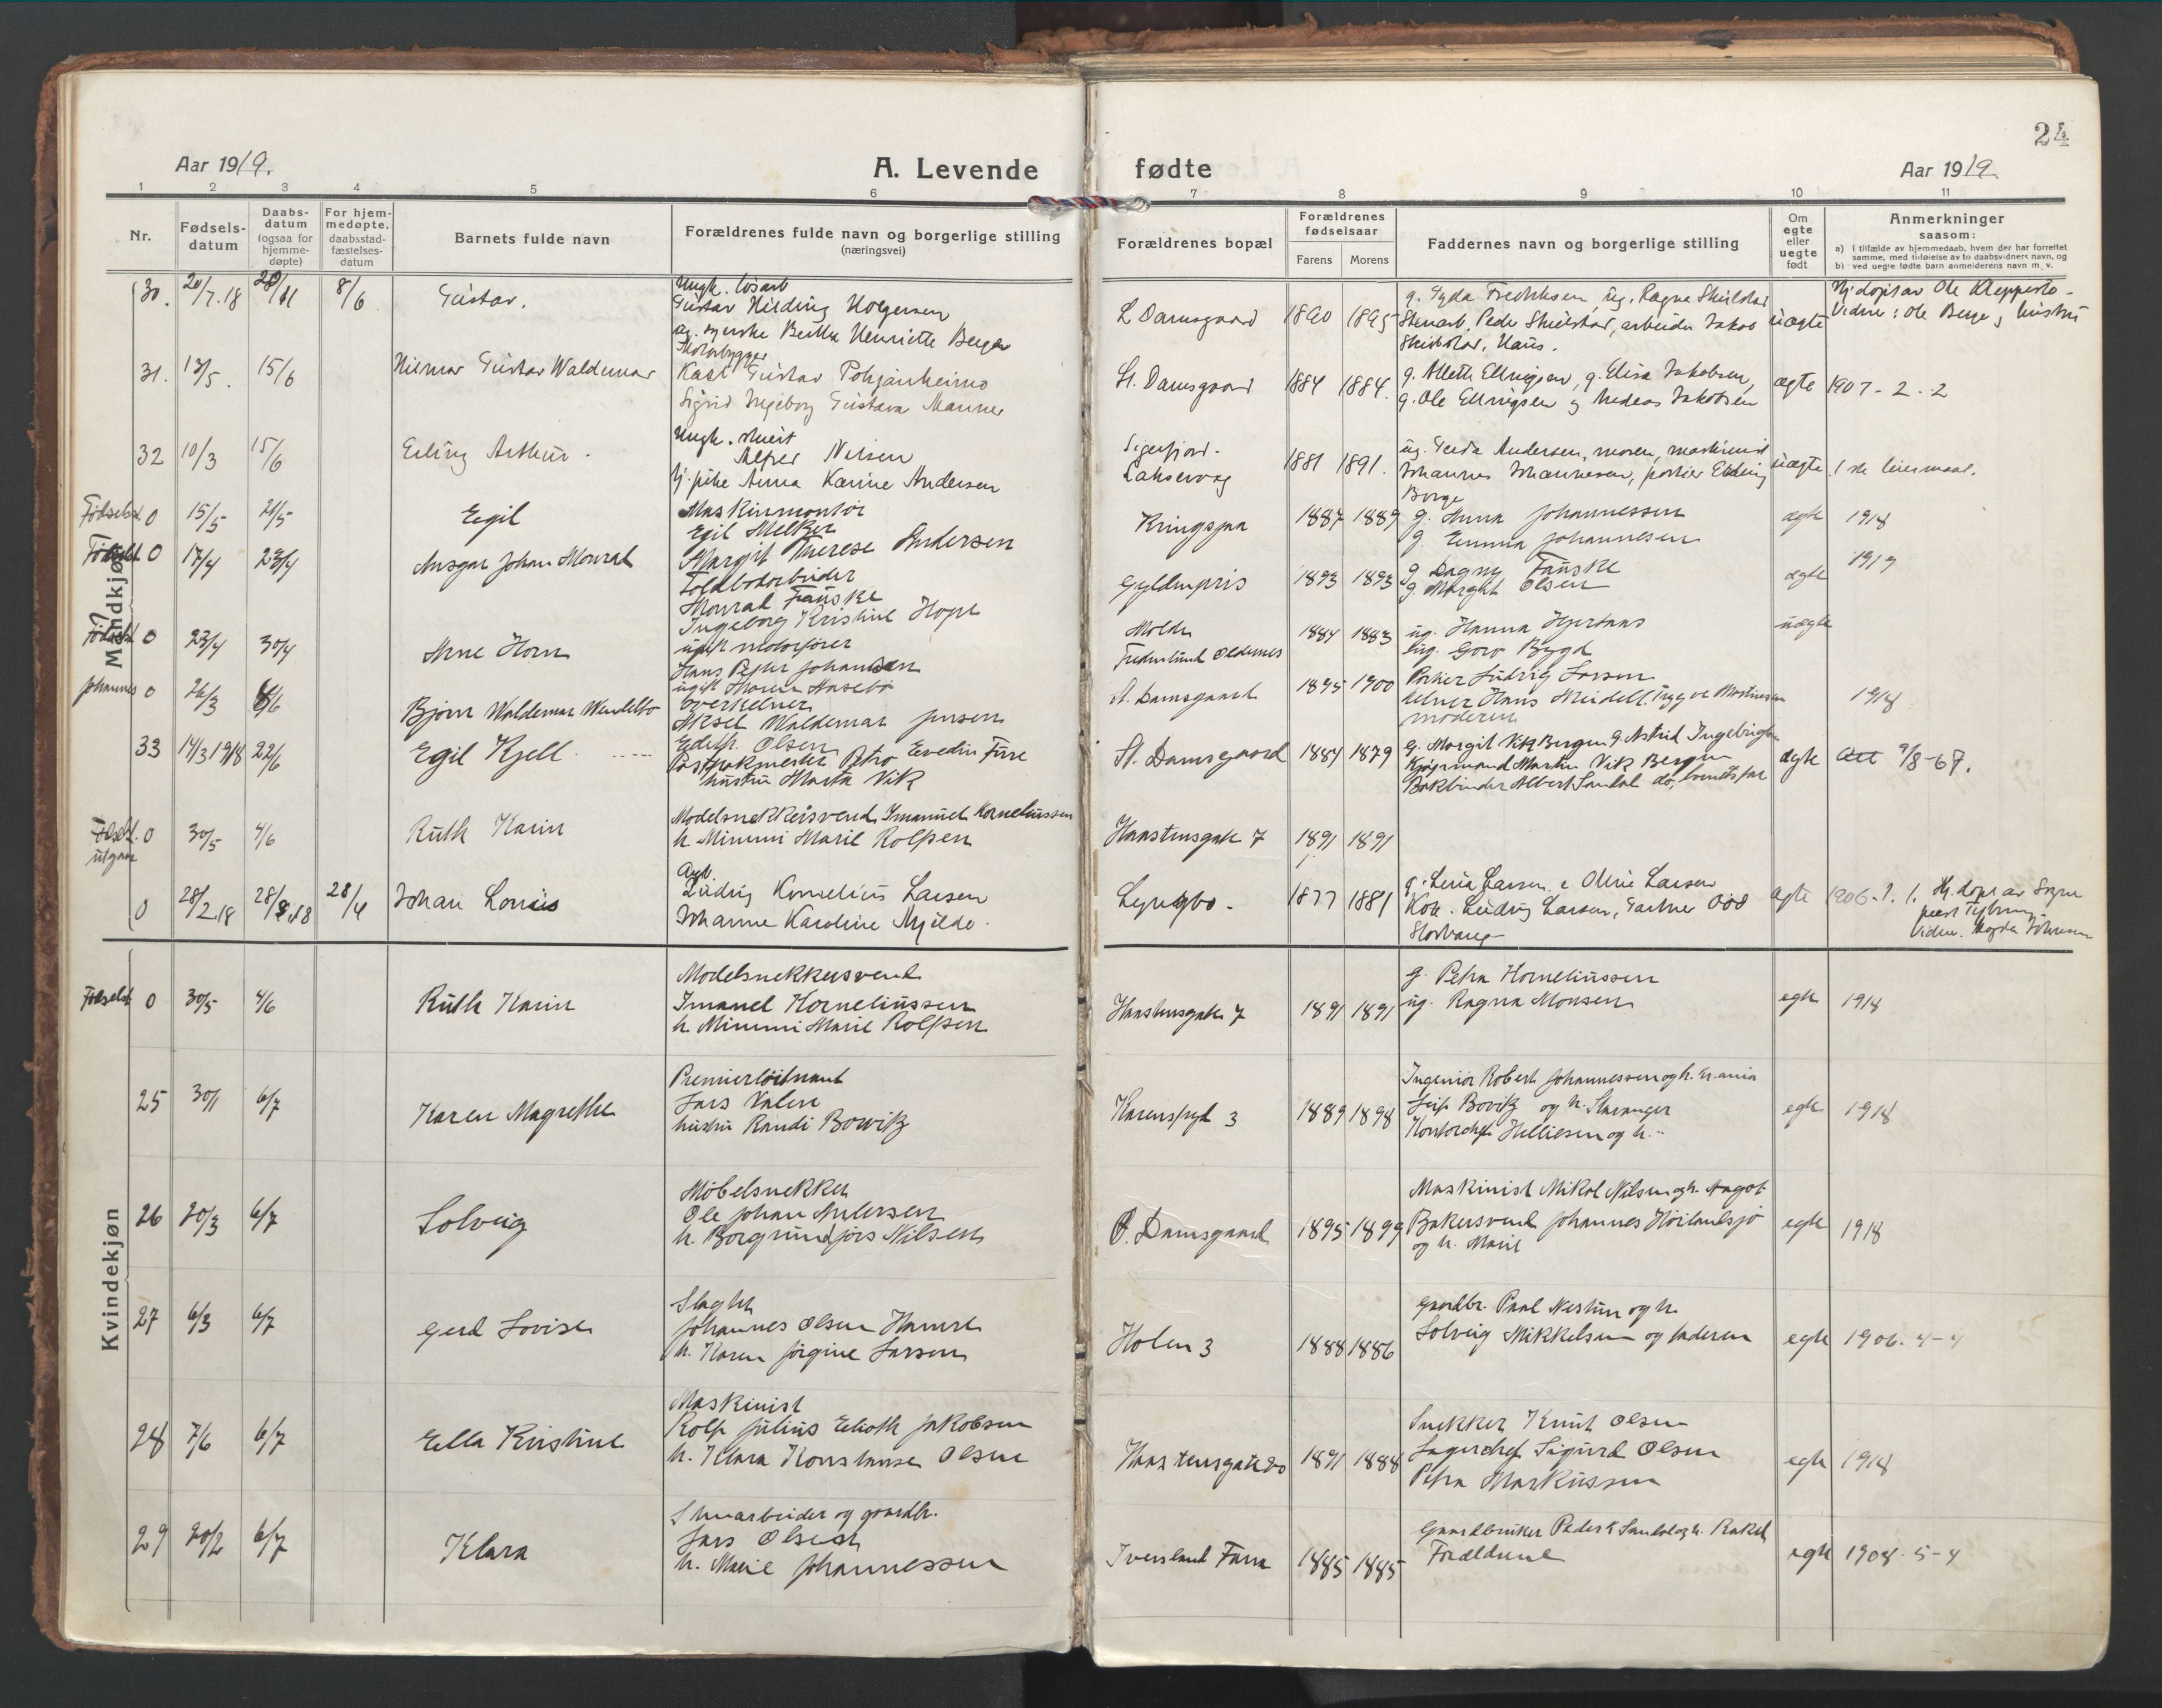 24
Aar 1919.
A. Levende fødte
Aar 1919
1 2 3 4 5 6 7 8 9 10 11
Nr.
Fødsels-
datum
Daabs-
datum
(ogsaa for
hjemme-
døpte)
For hjem-
medøpte,
daabsstad-
fæstelses-
datum
Barnets fulde navn
Forældrenes fulde navn og borgerlige stilling
(næringsvei)
Forældrenes bopæl
Forældrenes
fødselsaar
Farens
Morens
Faddernes navn og borgerlige stilling
Om
egte
eller
uegte
født
Anmerkninger
saasom:
a) I tilfælde av hjemmedaab, hvem der har forrettet
samme, med tilføielse av to daabsvidners navn, og
b) ved uegte fødte barn anmelderens navn m. v.
Mandkjøn
30. 20/7.18 8/6
Gustav.
Ungk. løsarb
Gustav Hilding Holgersen
Bertha Henriette Berger
L Damsgaard 1890 1895
g. Gyda Fredriksen, ug. Ragna Skeilstad
Stenarb. Peder Skeilstad, arbeider Jakob
uægte
Hj. døpt av Ole Kleppestø
Vidner: Ole Berge og hustru
31. 13/5. 15/6
Hilmar Gustav Waldemar
Motorbygger
Karl Gustav Pohjanheimo
Sigrid Ingeborg Gustava Manner
St. Damsgaard 1884 1884.
g. Alette Ellingsen, g. Elisa Jakobsen,
g. Ole Ellingsen og Andeas Jakobsen
ægte 1907-2-2
32 10/3 15/6
Erling Arthur.
Ungk. smeit
Alfred Nilsen
pike Anna Karine Andersen
Sigerfjord.
Laksevaag
1881 1891.
ug. Gerda Andersen, moren, maskinist
Johannes Johannesen, portier Elling
Borge
uægte 1ste leiermaal.
Fødselsst. 0 15/5 21/5
Egil
Maskinmontør
Egil Melker
Margit Therese Andersen
Kringsjaa 1887 1889
g. Anna Johannessen
g. Emma Johannesen
ægte 1918
0 17/4 23/4
Ansgar Johan Monrad
Toldbodarbeider
Monrad Fauske
Ingeborg Kristine Hope
Gyldenpris 1893 1893
g Dagny Fauske
g Margit Olsen
ægte 1919
0 23/4 30/4
Arne Horn
ugift motorfører
Hans Peder Johansen
ugift Maren Aasebø
Molde
1884 1883
ug. Hanna Hjertaas
ug. Goro Bygd
uægte
Johannes 0 26/3 8/6
Bjørn Waldemar Wendelbo
Overkelner
Aksel Waldemar Jensen
Edith Olsen
St. Damsgaard 1895 1900
Portier Ludvig Larsen
kelner Hans Meidell. Trygve Mortensen
moderen
1918
33 14/3 1918 22/6
Egil Kjell
Postpakmester Petro Evedin Fure
hustru Marta Vik
St. Damsgaard 1884 1879
g. Margit Vik Bergen g. Astrid Ingebrigtsen
Kjøpmand Martin Vik Bergen
Bokbinder Albert Sandal do, barnets far
ægte Att 9/8-67.
Fødselst.
utgaar
0 30/5 4/6
Ruth Karin
Modelsnekkersvend Imanuel Korneliussen
h. Mimmi Marie Rolfsen
Haastensgate 7 1891 1891
0 28/2.18 28/4
Johan Louis
Arb.
Ludvig Kornelius Larsen
Johanne Karoline Mjelde.
Lyngbo. 1877 1881
g. Lena Larsen, e Oline Larsen
Kok. Ludvig Larsen, Gartner Odd
Storhaug
ægte 1906.1.1. Hj. døpt av Sogne
prest
Vidne.
Kvindekjøn
Fødselst 0 30/5 4/6
Ruth Karin
Modelsnekkersvend
Imanuel Korneliussen
h. Mimmi Marie Rolfsen
Haastensgate 7 1891 1891
g. Petra Korneliussen
ug. Ragna Monsen
egte 1918
25 30/1 6/7
Karen Magrethe
Premierløitnant
Lars Valen
hustru Randi Bowitz
Karensfryd 3 1889 1898
Ingeniør Robert Johannessen og h. Urania
Leif Bovitz og h. Stavanger
Kontorchef Helliesen og h. -
egte 1918
26 20/3 6/7
Solveig
Møbelsnekker
Ole Johan Andersen
h. Borgrund Jørs Nilsen
St. Damsgaard 1895 1899
Maskinist Mikal Nilsen og h. Aagot
Bakersvend Johannes Høilandsjø
og h. Marie
egte 1918
27 6/3 6/7
Gerd Lovise
Slagter
Johannes Olsen Hamre
h. Karen Jørgine Larsen
Holen 3 1888 1886
Gaardbr. Paal Nestun og h.
Solveig Mikkelsen og faderen
egte 1906. 4-4
28 7/6 6/7
Ella Kristine
Maskinist
Rolf Julius Elioth Jakobsen
h. Klara Konstanse Olsen
Haastensgate 20 1891 1888
Snekker Knut Olsen
Lagerchef Sigurd Olsen
Petra Markussen
egte 1918
29 20/2 6/7
Klara
Stenarbeider og gaardbr.
Lars Olsen
h. Marie Johannessen
Iversland Fana 1885 1885
Gaardbruker Peder E Sandal og h. Rakel
Forældrene
egte 1908. 5-4